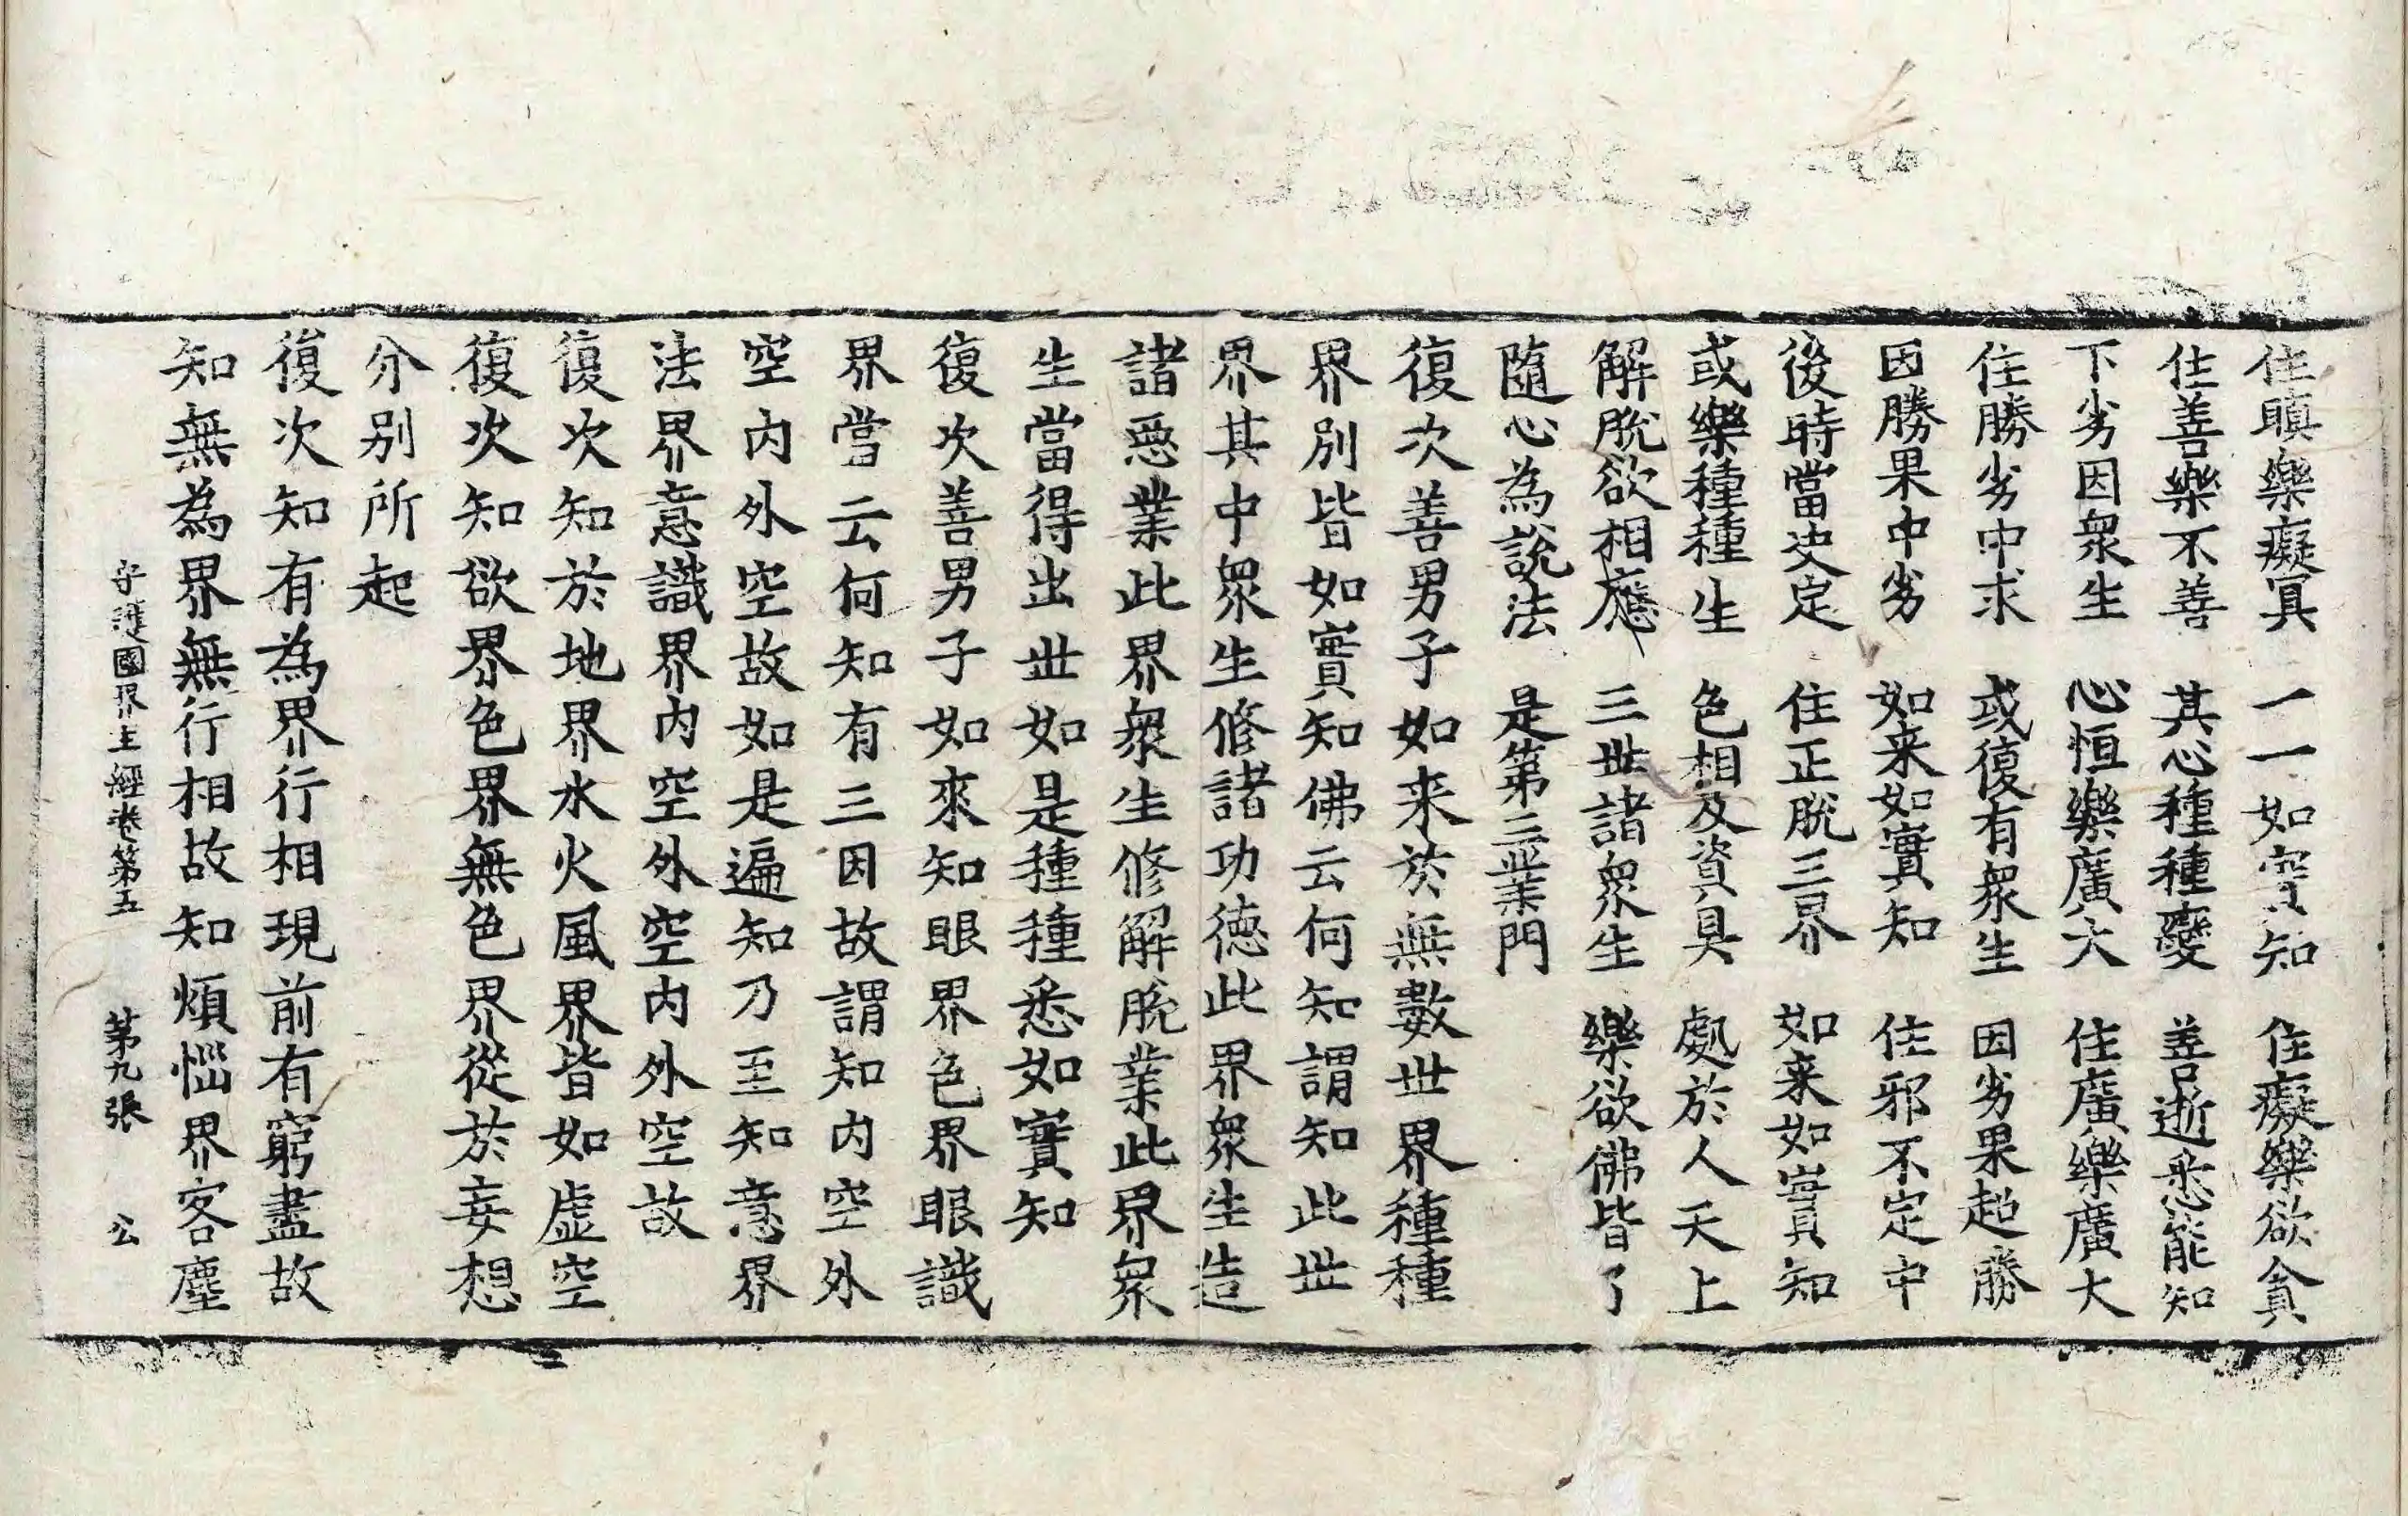 住瞋樂癡冥　一一如實知　住癡樂欲貪
住善樂不善　其心種種變　善逝悉能知
下劣因衆生　心恒樂廣大　住廣樂廣大
住勝劣中求　或復有衆生　因劣果超勝
因勝果中劣　如来如實知　住邪不定中
後時當决定　住正脫三界　如来如實知
或樂種種生　色相及資具　處於人天上
解脫欲相應　三世諸衆生　樂欲佛皆了
隨心為說法　是第三業門
復次善男子如来於無數世界種種
界別皆如實知佛云何知謂知此世
界其中衆生修諸功德此界衆生造
諸惡業此界衆生修解脫業此界衆
生當得出世如是種種悉如實知
復次善男子如來知眼界色界眼識
界當云何知有三因故謂知內空外
空內外空故如是遍知乃至知意界
法界意識界內空外空內外空故
復次知於地界水火風界皆如虛空
復次知欲界色界無色界從於妄想
分別所起
復次知有為界行相現前有窮盡故
知無為界無行相故知煩惱界客塵
守護國界主經卷第五　第九張　公